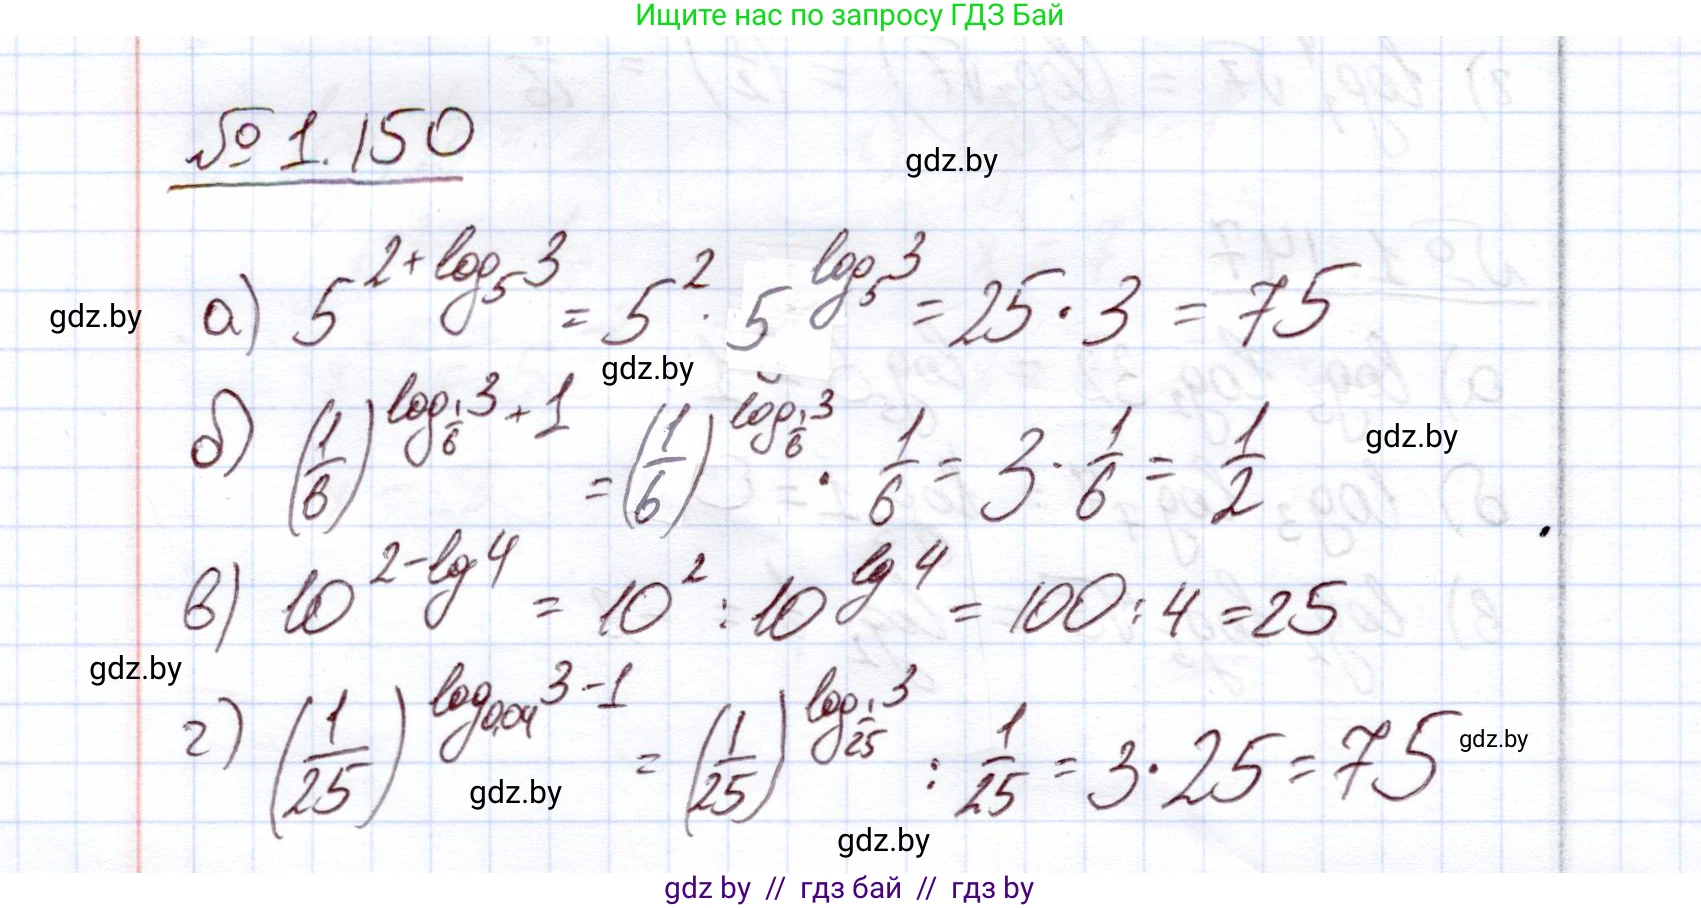 Ищите нас по запросу ГДЗ Бай
№ 1.150
gdz.by
а) 5^{2+log_5 3} = 5^2 · 5^{log_5 3} = 25 · 3 = 75
gdz.by
gdz.by
б) (1/6)^{log_{1/6} 3 + 1} = (1/6)^{log_{1/6} 3} · 1/6 = 3 · 1/6 = 1/2
gdz.by
в) 10^{2-lg 4} = 10^2 : 10^{lg 4} = 100 : 4 = 25
gdz.by
г) (1/25)^{log_{0,04} 3 - 1} = (1/25)^{log_{1/25} 3} : 1/25 = 3 · 25 = 75
gdz.by
gdz.by
gdz.by
gdz by // гдз бай // гдз by